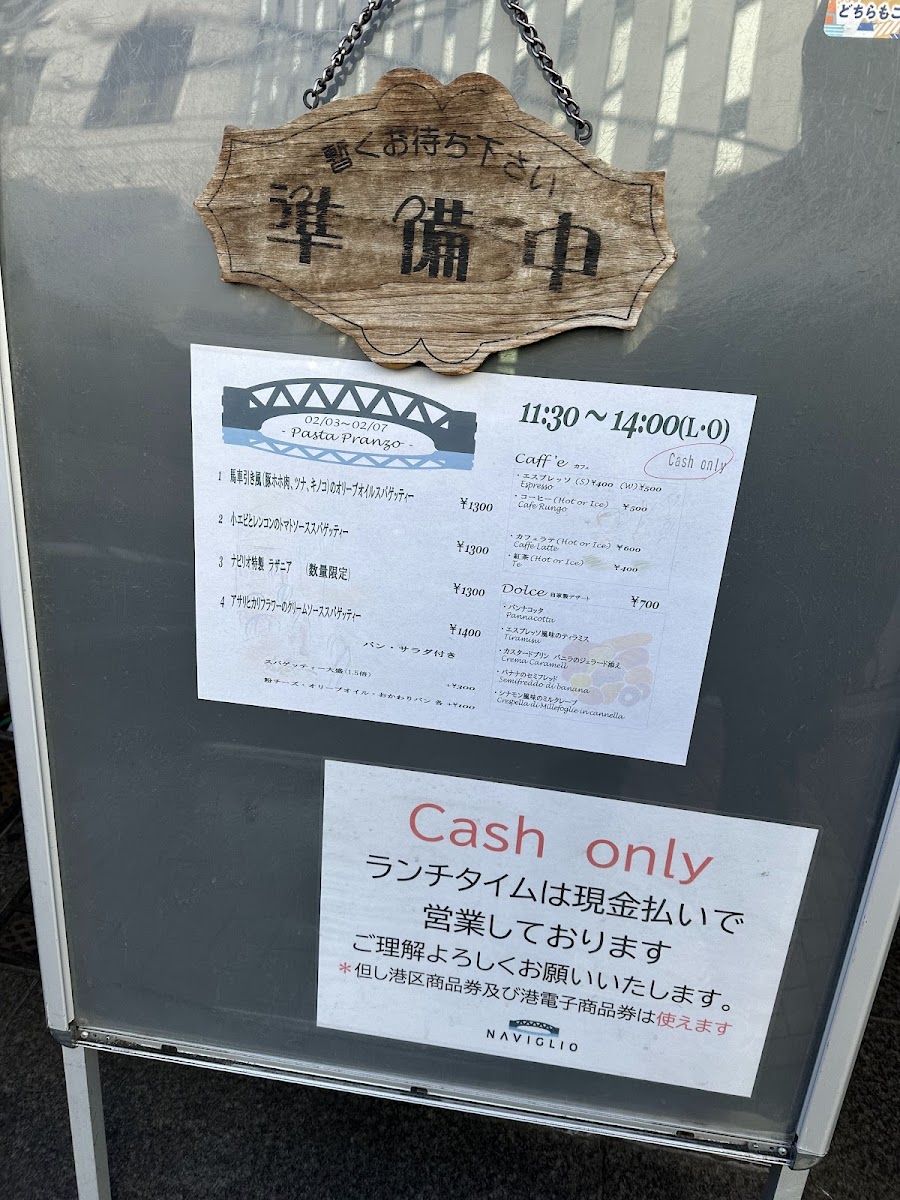 どちらもこ
暫くお待ち下さい
準備中
02/03～02/07
- Pasta Pranzo -
1 馬車引き風(豚ホホ肉、ツナ、キノコ)のオリーブオイルスパゲッティー
¥1300
2 小エビとレンコンのトマトソーススパゲッティー
¥1300
3 ナビリオ特製 ラザニア (数量限定)
¥1300
4 アサリとカリフラワーのクリームソーススパゲッティー
¥1400
パン・サラダ付き
スパゲッティー大盛(1.5倍) +¥300
粉チーズ・オリーブオイル・おかわりパン 各 +¥100
11:30～14:00(L・O)
Cash only
Caff'e カフェ
・エスプレッソ (S)¥400 (W)¥500
Espresso
・コーヒー(Hot or Ice) ¥500
Cafe Rungo
・カフェラテ(Hot or Ice) ¥600
Caffe Latte
・紅茶(Hot or Ice) ¥400
Te
Dolce 自家製デザート ¥700
・パンナコッタ
Pannacotta
・エスプレッソ風味のティラミス
Tiramisu
・カスタードプリン バニラのジェラード添え
Crema Caramell
・バナナのセミフレッド
Semifreddo di banana
・シナモン風味のミルクレープ
Crespella di Millefoglie in cannella
Cash only
ランチタイムは現金払いで
営業しております
ご理解よろしくお願いいたします。
*但し港区商品券及び港電子商品券は使えます
NAVIGLIO